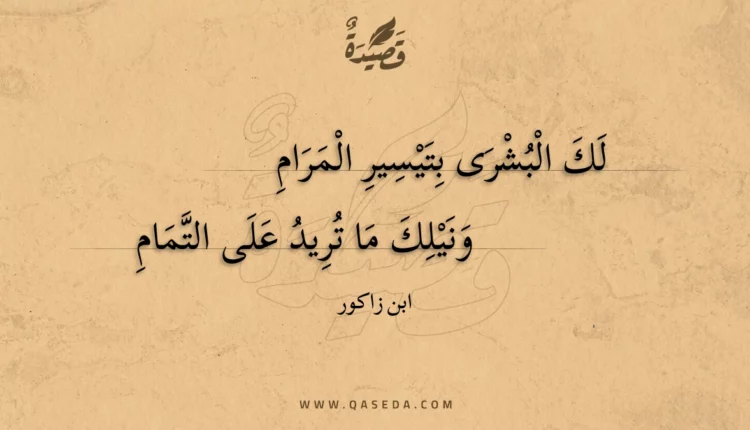 قَصِيْدَةٌ
لَكَ الْبُشْرَى بِتَيْسِيرِ الْمَرَامِ
وَنَيْلِكَ مَا تُرِيدُ عَلَى التَّمَامِ
ابن زاكور
WWW.QASEDA.COM